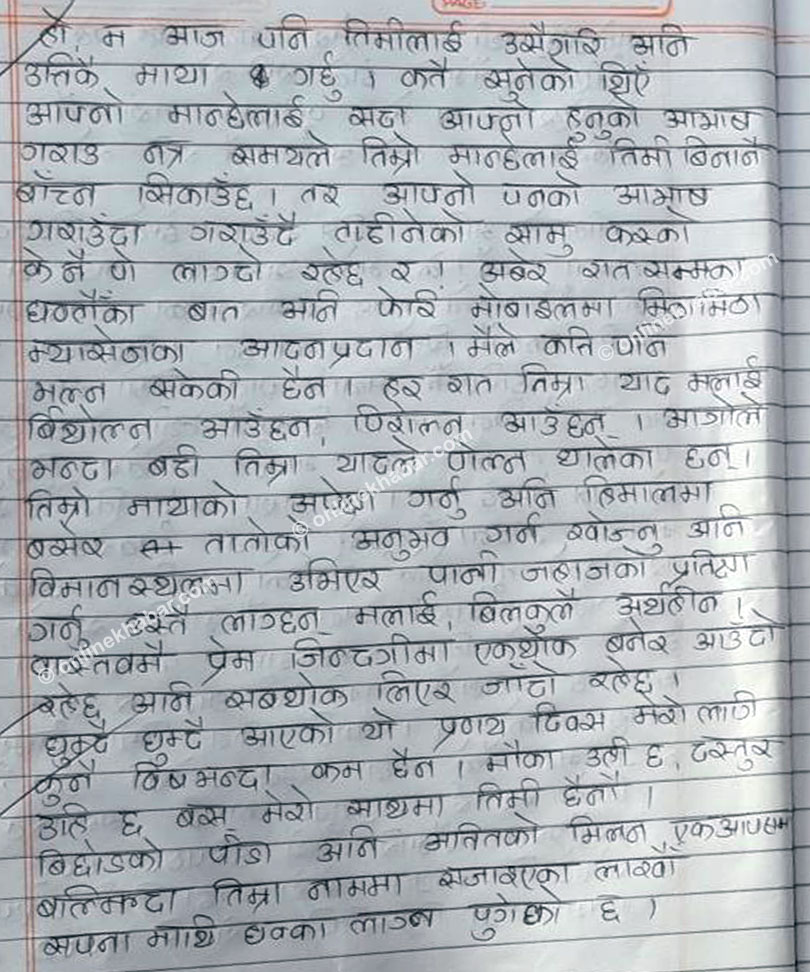 हो, म आज पनि तिमीलाई उसैगरि अनि
उत्तिकै माया गर्छु । कतै सुनेको थिएँ
आफ्नो मान्छेलाई सदा आफ्नो हुनुको आभाष
गराउ नत्र समयले तिम्रो मान्छेलाई तिमी बिनानै
बाँच्न सिकाउँछ । तर आफ्नो पनको आभाष
गराउँदा गराउँदै टाढीनेको सामु कस्को
के नै पो लाग्दो रहेछ र । अबेर रात सम्मका
घण्टौँका बात अनि फेरि मोबाइलमा मिठामिठा
म्यासेजका आदनप्रदान । मैले कत्ति पनि
भुल्न सकेकी छैन । हर रात तिम्रा याद मलाई
बिथोल्न आउँछन्, पिरोल्न आउँछन् । आगोले
भन्दा बढी तिम्रा यादले पोल्न थालेका छन् ।
तिम्रो मायाको अपेक्षा गर्नु अनि हिमालमा
बसेर तातोको अनुभव गर्न खोज्नु अनि
विमानस्थलमा उभिएर पानी जहाजको प्रतिक्षा
गर्नु उस्तै लाग्छन् मलाई, बिलकुलै अर्थहीन ।
वास्तवमै प्रेम जिन्दगीमा एकथोक बनेर आउदो
रहेछ अनि सबथोक लिएर जाँदो रहेछ ।
घुम्दै घुम्दै आएको यो प्रणय दिवस मेरो लागी
कुनै बिषभन्दा कम छैन । मौका उही छ, दस्तुर
उहि छ बस मेरो साथमा तिमी छैनौ ।
बिछोडको पीडा अनि अतितको मिलन एकआपसमा
बल्झिदा तिम्रा नाममा सजाइएका लाखौं
सपना माथि धक्का लाग्न पुगेको छ ।
© onlinekhabar.com
© onlinekhabar.com
© onlinekhabar.com